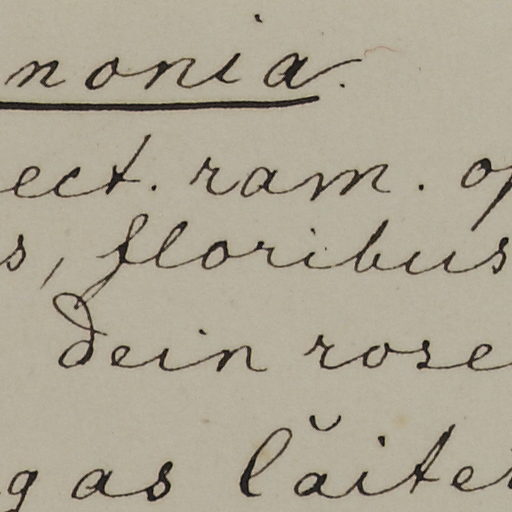 nonia.
ect. ram. op
s, floribus
dein rose
gas lăiter